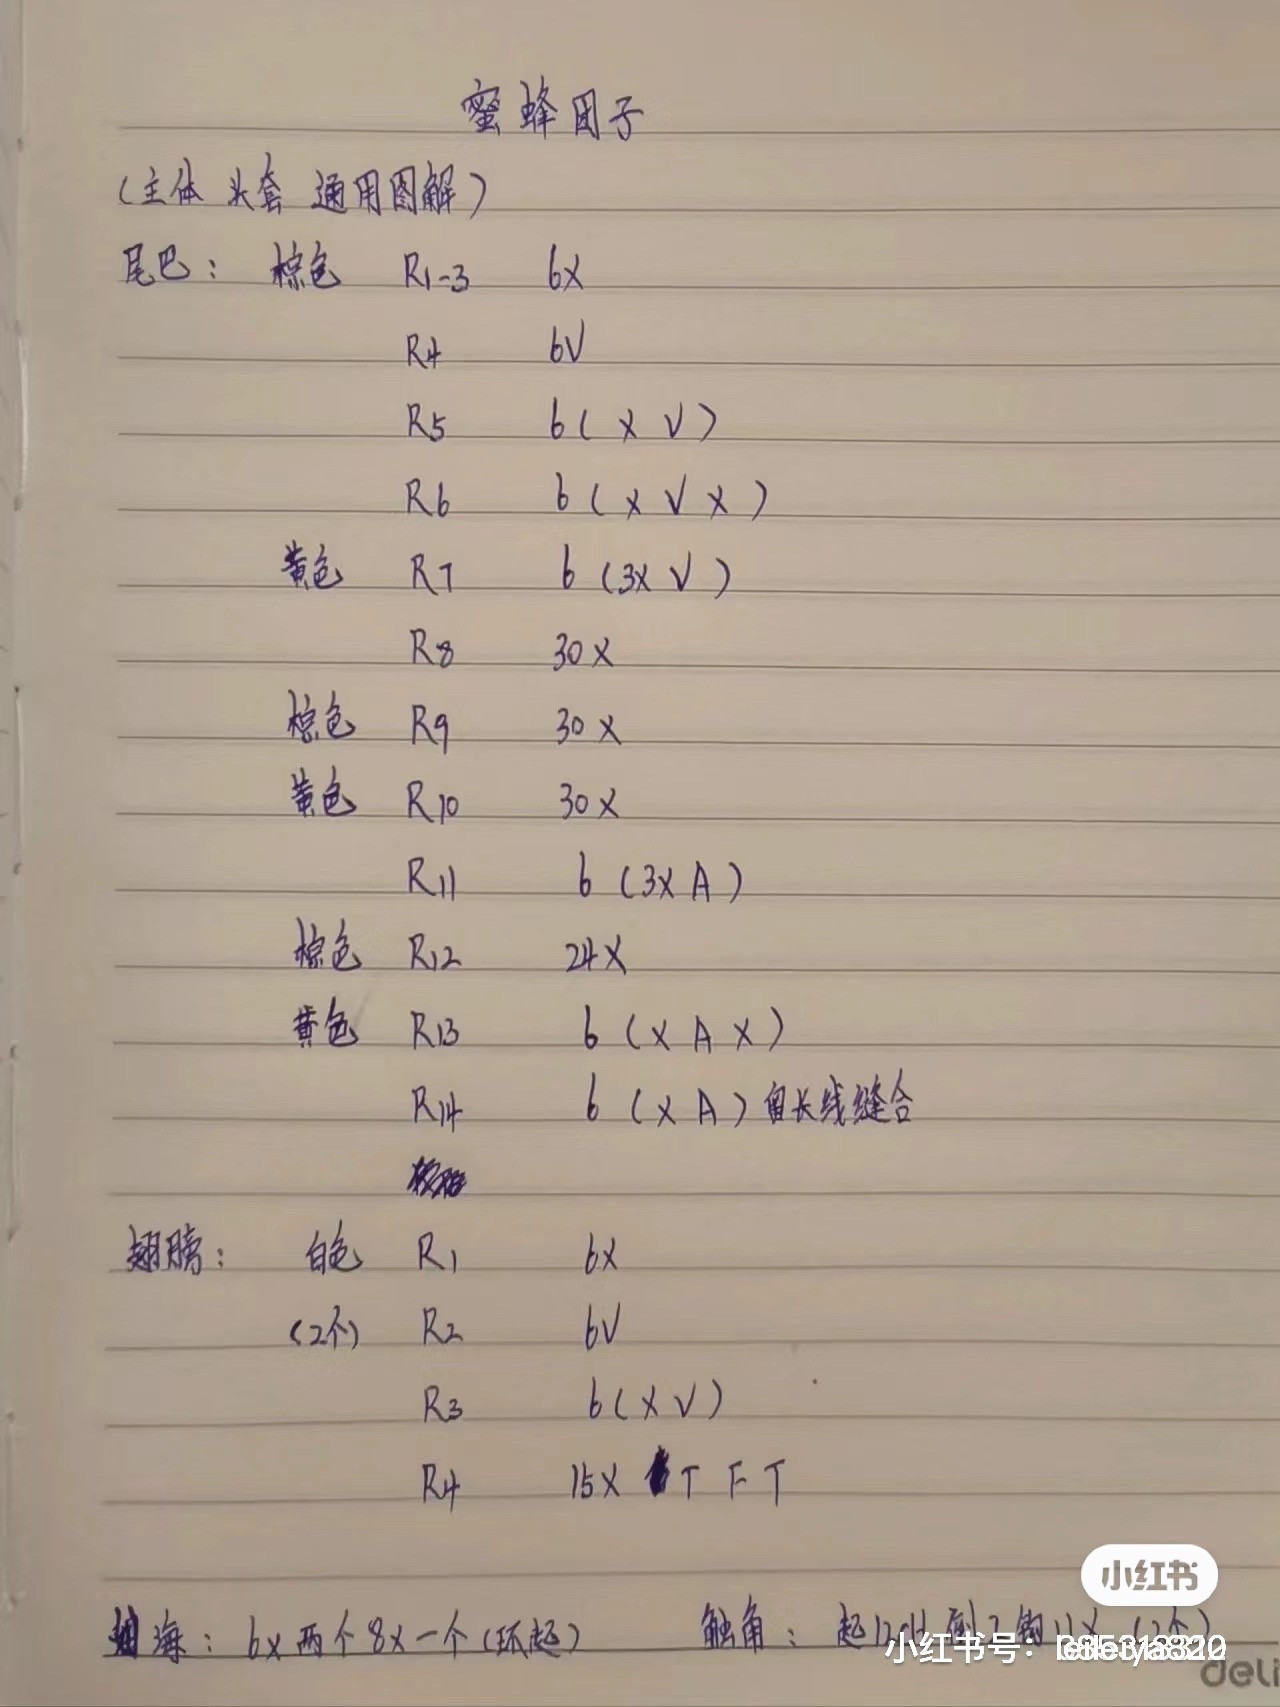 蜜蜂团子
(主体 头套 通用图解)
尾巴: 棕色 R1-3 6X
R4 6V
R5 6(XV)
R6 6(XVX)
黄色 R7 6(3XV)
R8 30X
棕色 R9 30X
黄色 R10 30X
R11 6(3XA)
棕色 R12 24X
黄色 R13 6(XAX)
R14 6(XA)留长线缝合
翅膀: 白色 R1 6X
(2个) R2 6V
R3 6(XV)
R4 15X T F T
小红书
海: 6X两个8X一个(环起) 触角: 起12 钩11X (2个)
小红书号:
deli